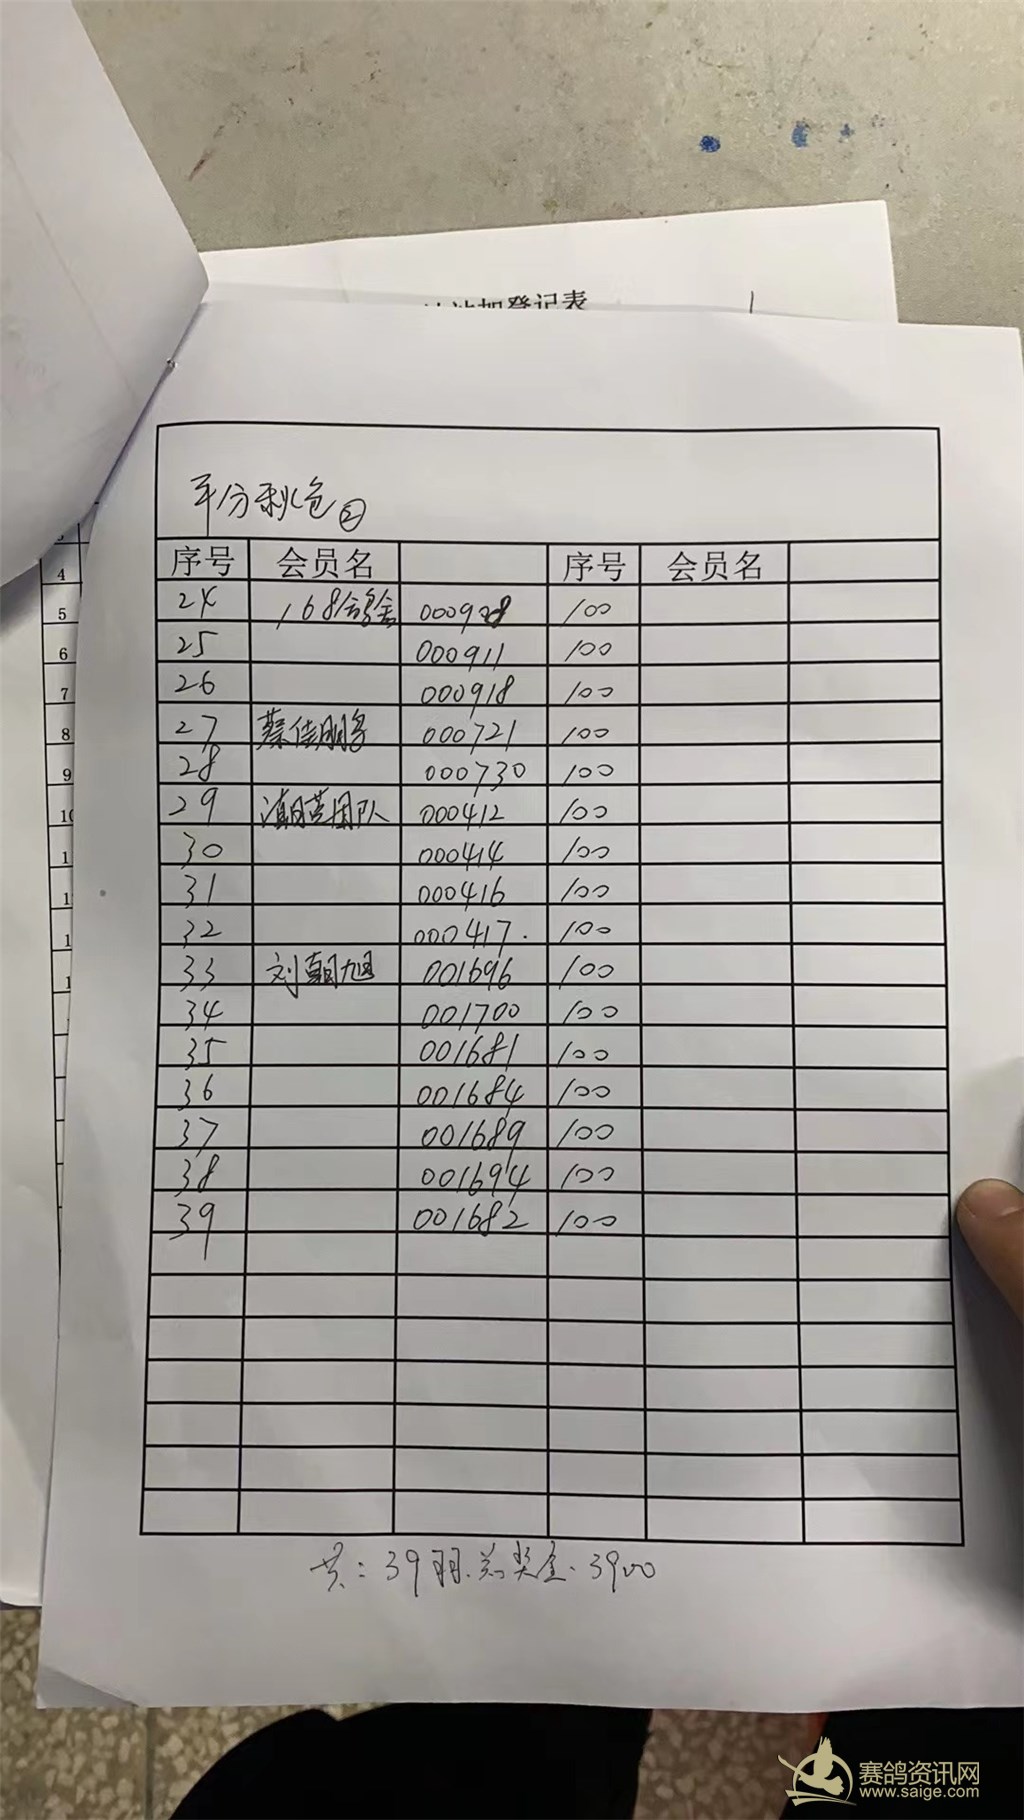 加登记表
平分秋色②
序号 会员名 序号 会员名
4
24 168鸽舍 000908 100
5
25 000911 100
6
26 000918 100
7
27 蔡佳明 000721 100
8
28 000730 100
9
29 团队 000412 100
10
30 000414 100
31 000416 100
32 000417. 100
33 刘朝旭 001696 100
34 001700 100
35 001681 100
36 001684 100
37 001689 100
38 001694 100
39 001682 100
共:39羽.总奖金.3900
赛鸽资讯网
www.saige.com